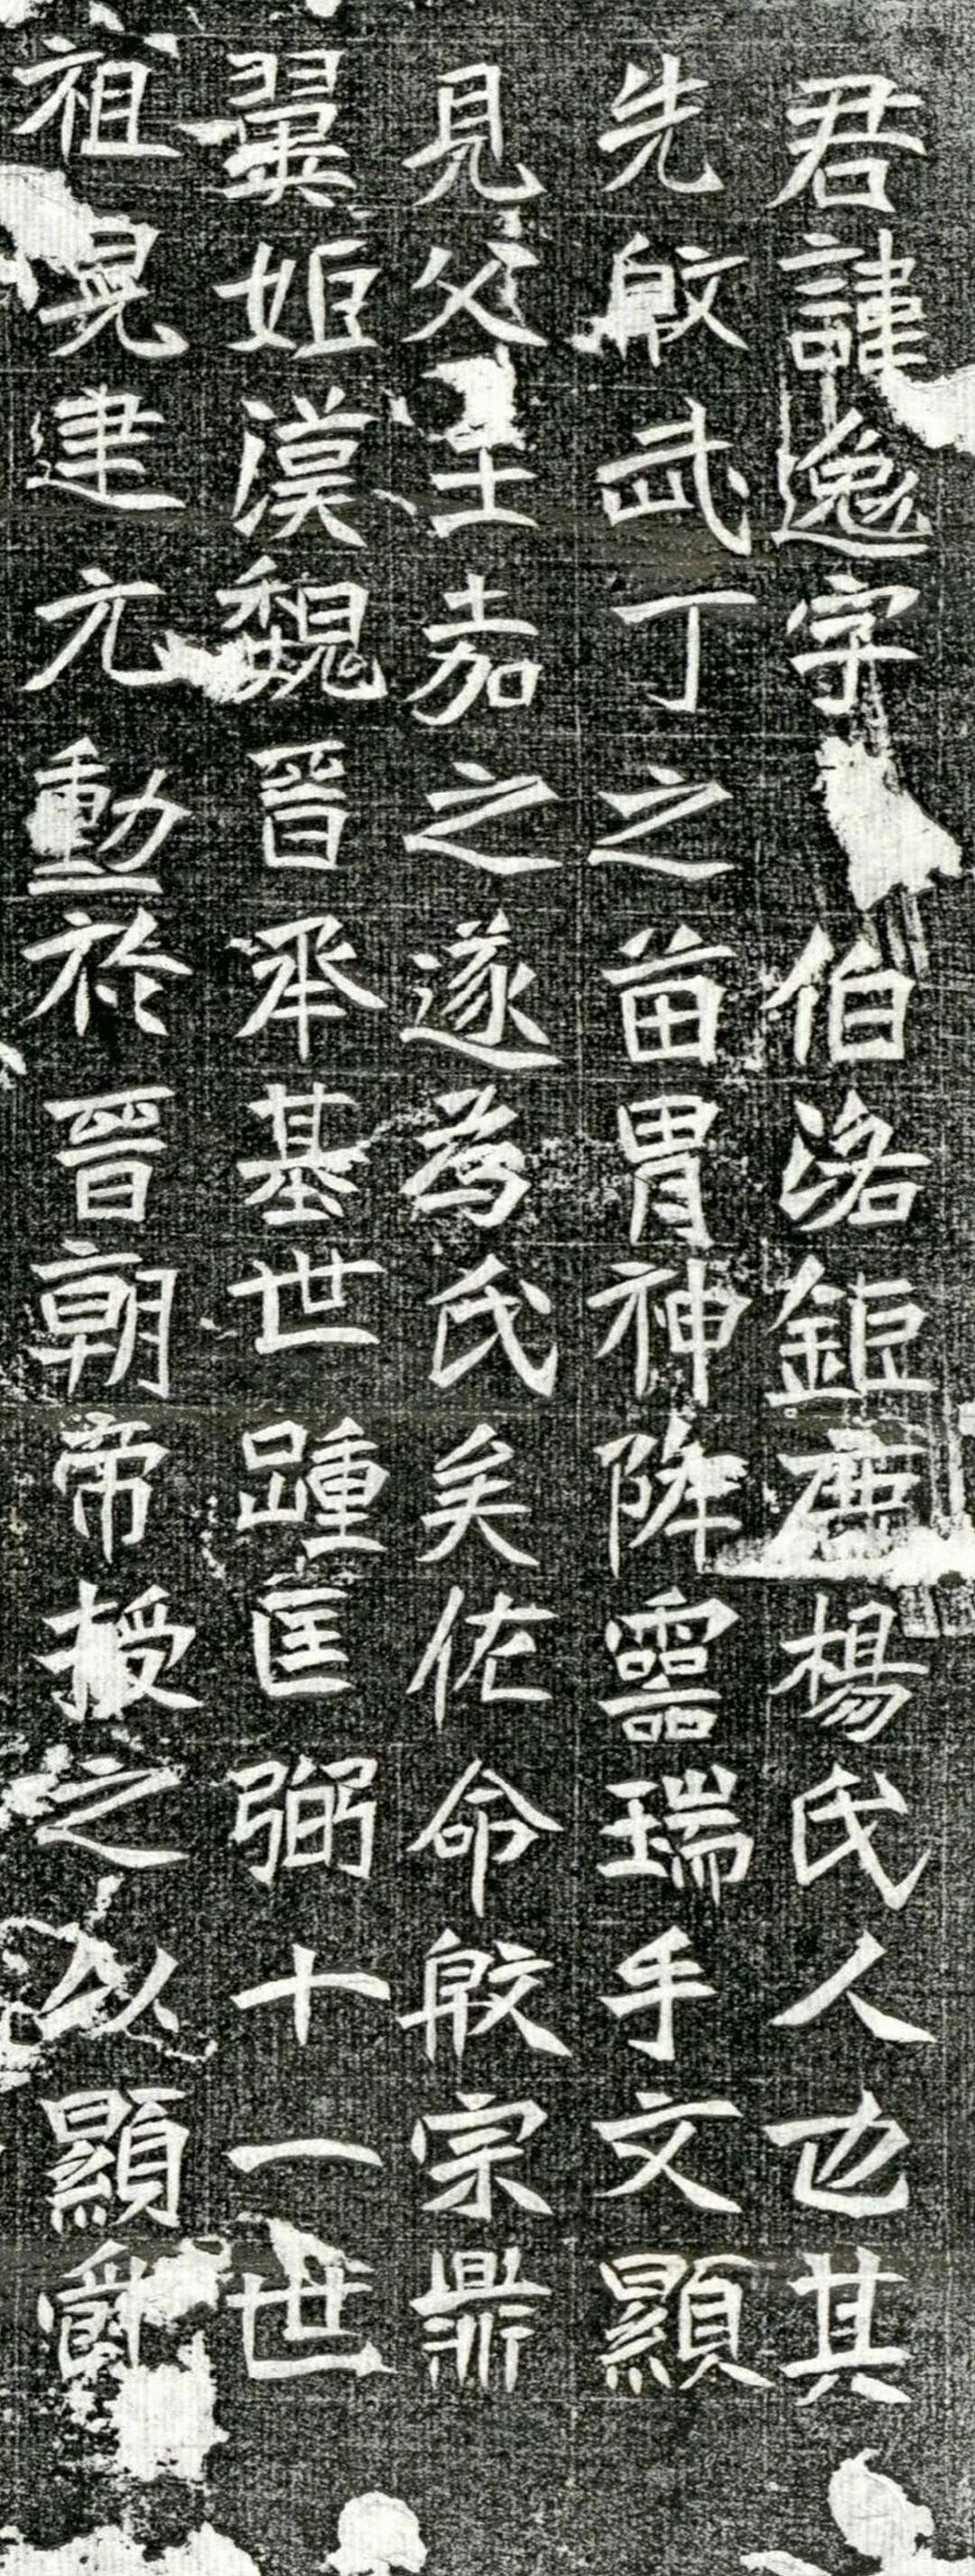 君諱逸字伯洛鉅鹿楊氏人也其
先殷武丁之苗胄神降靈瑞手文顯
見父王嘉之遂為氏矣佐命殷宗鼎
翼姬漢魏晉承基世踵匡弼十一世
祖晃建元勳於晉朝帝授之以顯爵